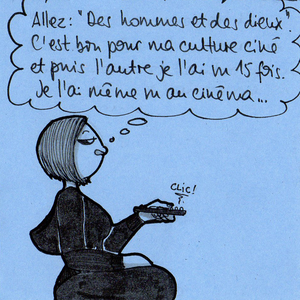 Allez: "Des hommes et des dieux".
C'est bon pour ma culture ciné
et puis l'autre je l'ai vu 15 fois.
Je l'ai même vu au cinéma...
CLIC!